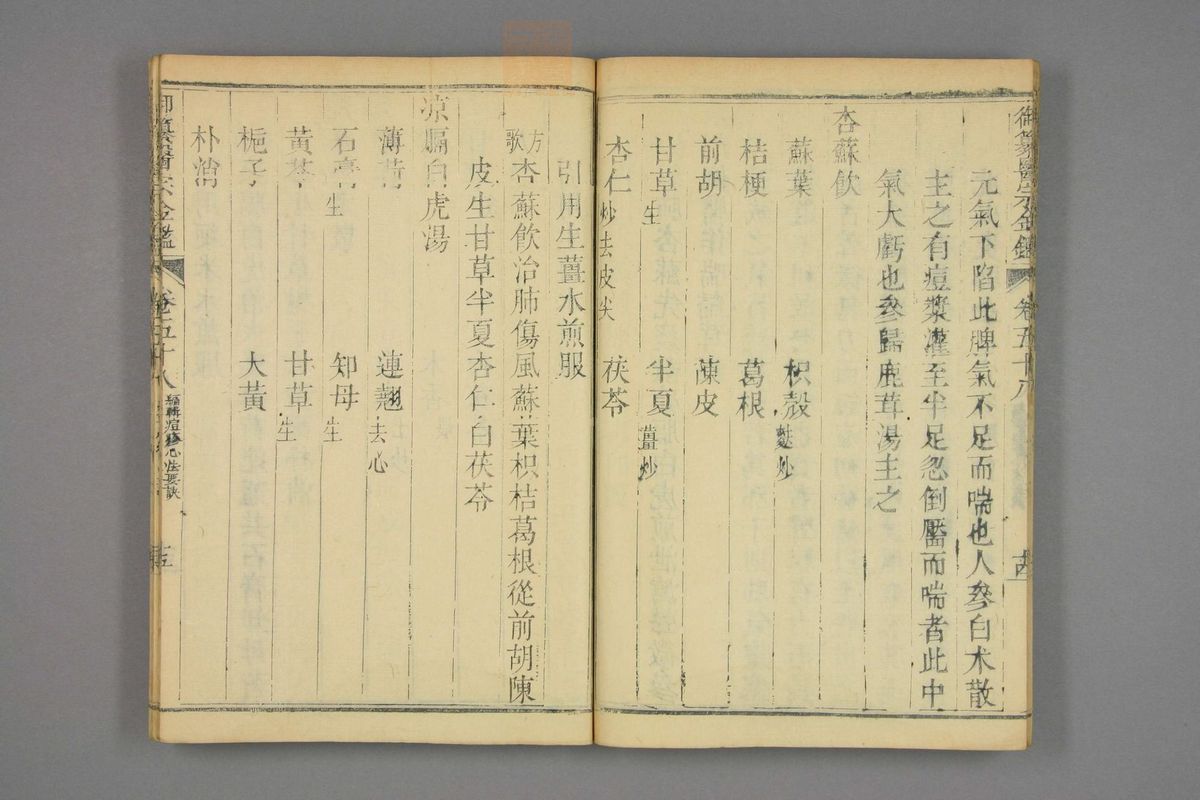 御纂醫宗金鑑 卷五十八
元氣下陷此脾氣不足而喘也人參白朮散
主之有痘漿灌至半足忽倒靨而喘者此中
氣大虧也參歸鹿茸湯主之
杏蘇飲
蘇葉 枳殼麩炒
桔梗 葛根
前胡 陳皮
甘草生 半夏薑炒
杏仁炒去皮尖 茯苓
引用生薑水煎服
方歌 杏蘇飲治肺傷風蘇葉枳桔葛根從前胡陳
皮生甘草半夏杏仁白茯苓
涼膈白虎湯
薄荷 連翹去心
石膏生 知母生
黃芩 甘草生
梔子 大黃
朴硝
御纂醫宗金鑑 卷五十八 編輯痘疹心法要訣